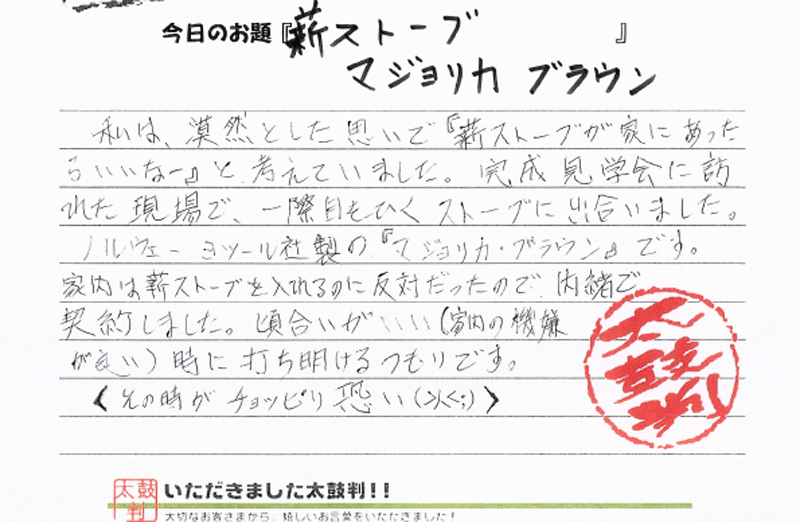 今日のお題『薪ストーブ　　　　』
マジョリカ ブラウン
私は、漠然とした思いで『薪ストーブが家にあった
らいいなー』と考えていました。完成見学会に訪
れた現場で、一際目をひくストーブに出合いました。
ノルウェーヨツール社製の『マジョリカ・ブラウン』です。
家内は薪ストーブを入れるのに反対だったので、内緒で
契約しました。頃合いがいい(家内の機嫌
が良い)時に打ち明けるつもりです。
《その時がチョッピリ恐い(^^;)》
太鼓判
太鼓判
いただきました太鼓判!!
大切なお客さまから、嬉しいお言葉をいただきました!